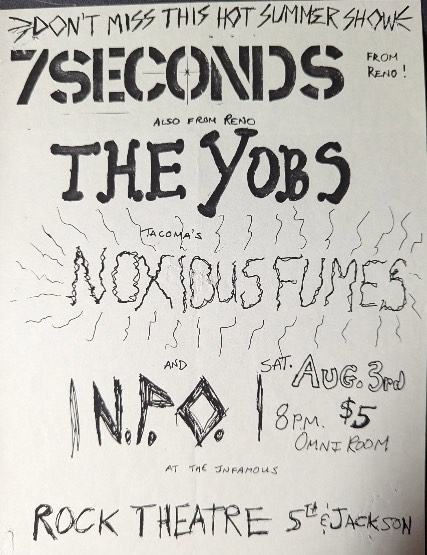 DON'T MISS THIS HOT SUMMER SHOW
7SECONDS
FROM
RENO!
ALSO FROM RENO
THE YOBS
TACOMA'S
NOXIOUS FUMES
AND
N.P.O.
SAT. AUG. 3rd
8PM. $5
OMNI ROOM
AT THE INFAMOUS
ROCK THEATRE 5th & JACKSON